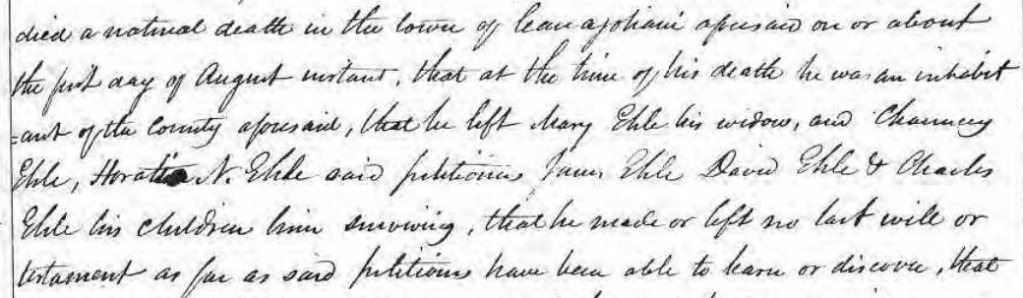 died a natural death in the town of Canajoharie aforesaid on or about
the first day of August instant, that at the time of his death he was an inhabit
=ant of the County aforesaid, that he left Mary Ehle his widow, and Chauncey
Ehle, Horatio N. Ehle said petitioners James Ehle David Ehle & Charles
Ehle his children him surviving, that he made or left no last will or
testament as far as said petitioners have been able to learn or discover, that